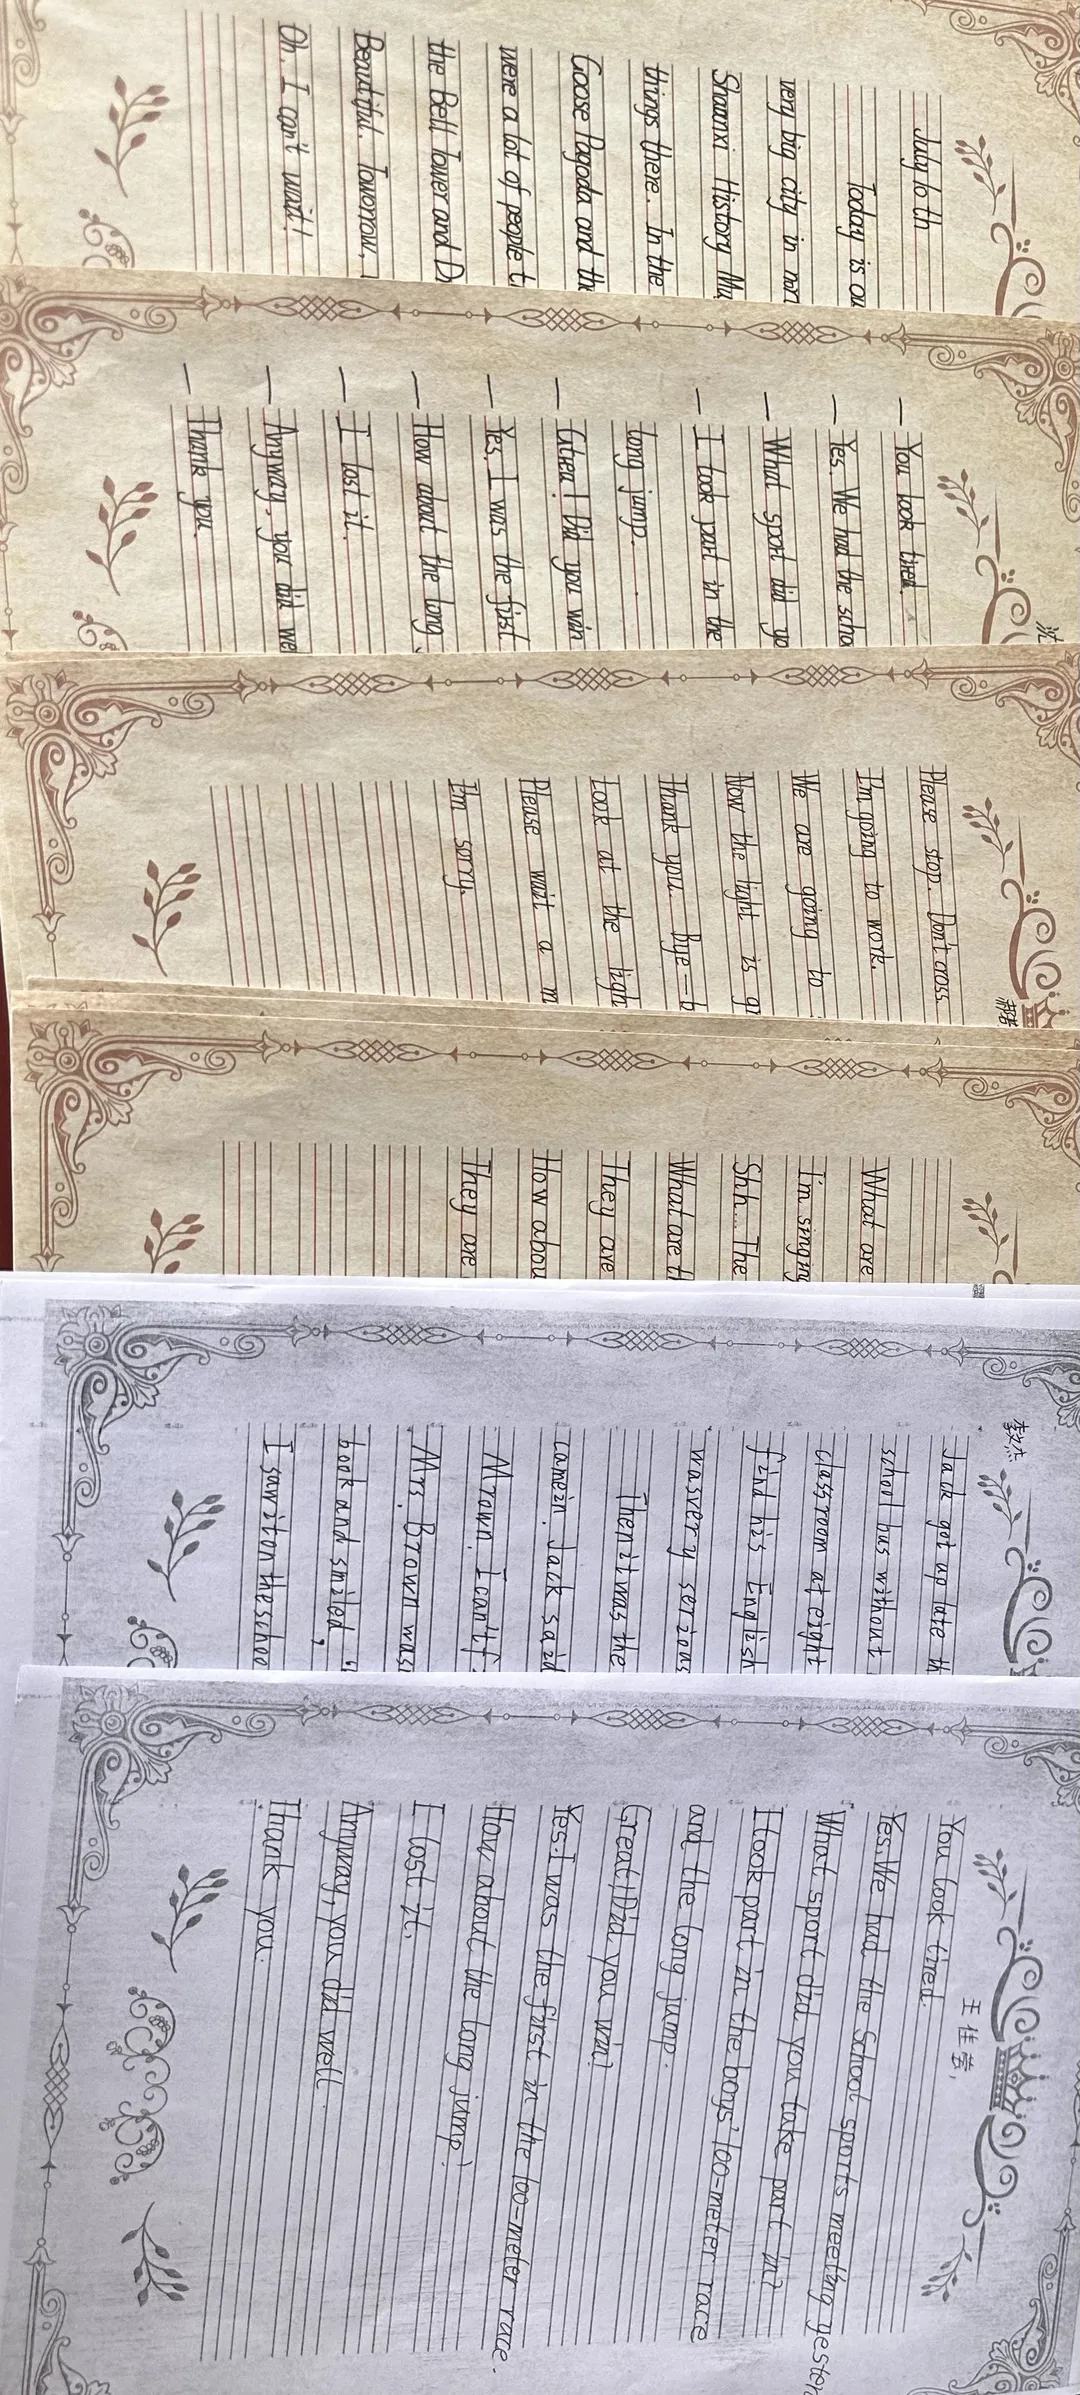 July 10th
Today is ou
very big city in nor
Shaanxi History Mu
things there. In the
Goose Pagoda and th
were a lot of people t
the Bell Tower and D
Beautiful. Towonow,
Oh. I can't wait!
沈
— You look tired.
— Yes. We had the scho
— What sport did yo
— I took part in the
long jump.
— Great! Did you win
— Yes. I was the first
— How about the long
— I lost it.
— Anyway, you did we
— Thank you.
Please stop. Don't cross
I'm going to work.
We are going to
Now the light is gr
Thank you. Bye-b
Look at the ligh
Please wait a m
I'm sorry.
What are
I'm singing
Shh... The
What are th
They are
How abou
They are
李文杰
Jack got up late th
school bus without
classroom at eight
find his English
was very serious
Then it was the
came in. Jack said
Mrown. I can't f
Mrs. Brown was
book and smiled, "
I saw it on the schoo
王佳营,
You look tired.
Yes. We had the School sports meeting yester
What sport did you take part in?
I took part in the boys' 100-meter race
and the long jump.
Great! Did you win?
Yes. I was the first in the 100-meter race.
How about the long jump?
I lost it.
Anyway, you did well
Thank you.